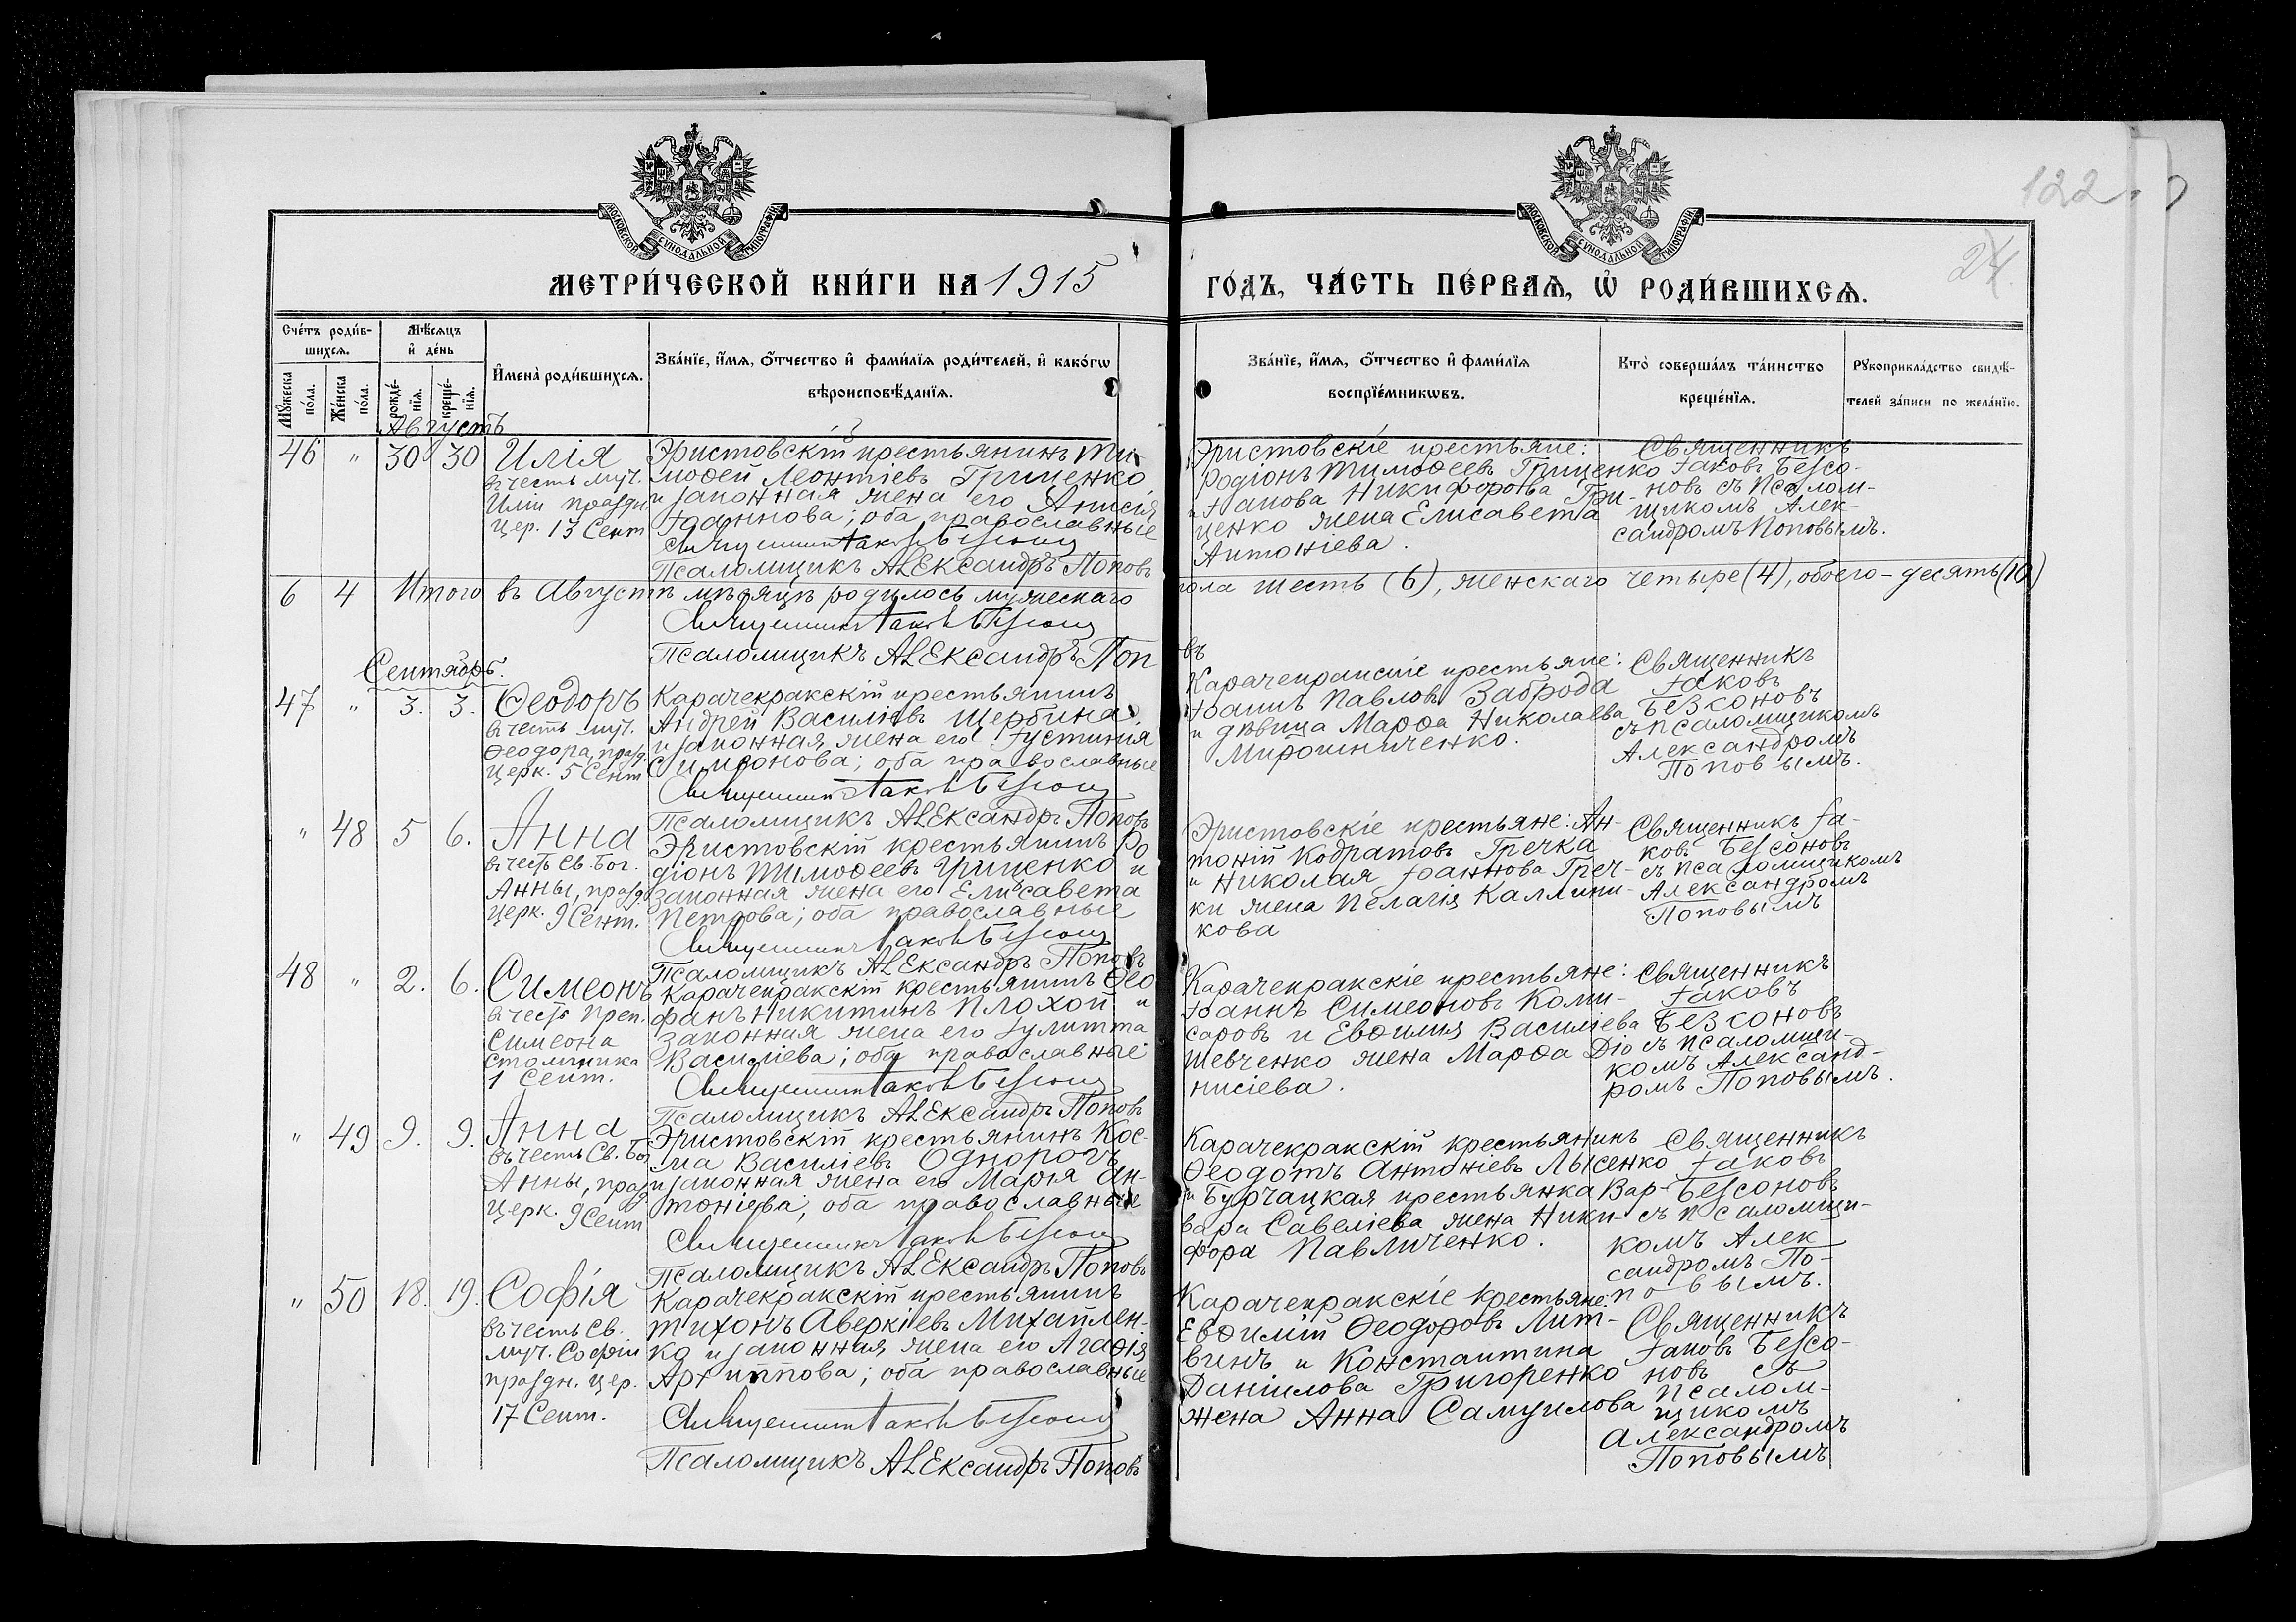 122
24
МОСКОВСКОЙ СѴНОДАЛЬНОЙ ТИПОГРАФІИ
МОСКОВСКОЙ СѴНОДАЛЬНОЙ ТИПОГРАФІИ
МЕТРИ́ЧЕСКОЙ КНИ́ГИ НА 1915
ГО́ДЪ, ЧА́СТЬ ПЕ́РВАѦ, Ѿ РОДИ́ВШИХСѦ.
Сче́тъ роди́в-
шихсѧ.
Мѣ́сѧцъ
и҆ де́нь
Мꙋ́жеска
по́ла.
Же́нска
по́ла.
рожде́-
нїѧ.
креще́-
нїѧ.
И҆мена̀ роди́вшихсѧ.
Зва́нїе, и҆́мѧ, ѻ҆́тчество и҆ фами́лїѧ роди́телей, и҆ како́гѡ
вѣроисповѣ́данїѧ.
Зва́нїе, и҆́мѧ, ѻ҆́тчество и҆ фами́лїѧ
воспрїе́мникѡвъ.
Кто̀ соверша́лъ та́инство
креще́нїѧ.
Рꙋкоприкла́дство свидѣ́-
телей за́писи по жела́нїю.
Августъ
46 " 30 30 Илія
въ честь муч.
Иліи праздн.
цер. 13 Сент
Эристовскій крестьянинъ Ти-
моѳей Леонтіевъ Гриценко
и законная жена его Анисія
Іоаннова; оба православные
Священникъ Іаковъ Безсонов
Псаломщикъ Александръ Поповъ
Эристовскіе крестьяне:
Родіонъ Тимоѳеевъ Гриценко
и Іакова Никифорова Гри-
ценко жена Елисавета
Антоніева.
Священникъ
Іаковъ Безсо-
новъ съ Псалом-
щикомъ Алек-
сандромъ Поповымъ.
6 4 Итого въ Августѣ мѣсяцѣ родилось мужескаго
пола шесть (6), женскаго четыре (4), обоего - десять (10)
Священникъ Іаковъ Безсонов
Псаломщикъ Александръ Поп
въ
Сентябрь.
47 " 3. 3. Ѳеодоръ
въ честь муч.
Ѳеодора, празд.
церк. 5 Сент
Карачекракскій крестьянинъ
Андрей Василіевъ Щербина
и законная жена его Іустинія
Симеонова; оба православные
Священникъ Іаковъ Безсонов
Псаломщикъ Александръ Поповъ
Карачекракскіе крестьяне:
Іоаннъ Павловъ Заброда
и дѣвица Марѳа Николаева
Мирошниченко.
Священникъ
Іаковъ
Безсоновъ
съ псаломщикомъ
Александромъ
Поповымъ.
" 48 5 6. Анна
въ честь Св. Бог.
Анны, празд.
церк. 9 Сент.
Эристовскій крестьянинъ Ро
діонъ Тимоѳеевъ Гриценко и
законная жена его Елисавета
Петрова; оба православные
Священникъ Іаковъ Безсонов
Псаломщикъ Александръ Поповъ
Эристовскіе крестьяне: Ан-
тоній Кодратовъ Гречка
и Николая Іоаннова Греч-
ки жена Пелагія Каллини-
кова
Священникъ Іа-
ковъ Безсоновъ
съ псаломщикомъ
Александромъ
Поповымъ
48 " 2. 6. Симеонъ
въ честь преп.
Симеона
столпника
1 Сент.
Карачекракскій крестьянинъ Ѳео
фанъ Никитинъ Плохой и
законная жена его Іулитта
Василіева; оба православные
Священникъ Іаковъ Безсонов
Псаломщикъ Александръ Поповъ
Карачекракскіе крестьяне:
Іоаннъ Симеоновъ Коми-
саровъ и Евѳимія Василіева
Шевченко жена Марѳа Діо
нисіева.
Священникъ
Іаковъ
Безсоновъ
съ псаломщи-
комъ Александ-
ромъ Поповымъ.
" 49 9. 9. Анна
въ честь Св. Бог
Анны, празд
церк. 9 Сент
Эристовскій крестьянинъ Кос-
ма Василіевъ Однорогъ
и законная жена его Марія Ан-
тоніева; оба православные
Священникъ Іаковъ Безсонов
Псаломщикъ Александръ Поповъ
Карачекракскій крестьянинъ
Ѳеодотъ Антоніевъ Лысенко
и Бурчацкая крестьянка Вар-
вара Савеліева жена Ники-
фора Павличенко.
Священникъ
Іаковъ
Безсоновъ
съ псаломщи-
комъ Алек
сандромъ По-
повымъ.
" 50 18. 19. Софія
въ честь Св.
муч. Софіи
праздн. цер.
17 Сент.
Карачекракскій крестьянинъ
Тихонъ Аверкіевъ Михайлен-
ко и законная жена его Агафія
Архиппова; оба православные
Священникъ Іаковъ Безсонов
Псаломщикъ Александръ Поповъ
Карачекракскіе крестьяне:
Евѳимій Ѳеодоровъ Лит-
винъ и Константина
Даніилова Григоренко
жена Анна Самуилова
Священникъ
Іаковъ Безсо-
новъ съ
псалом-
щикомъ
Александромъ
Поповымъ